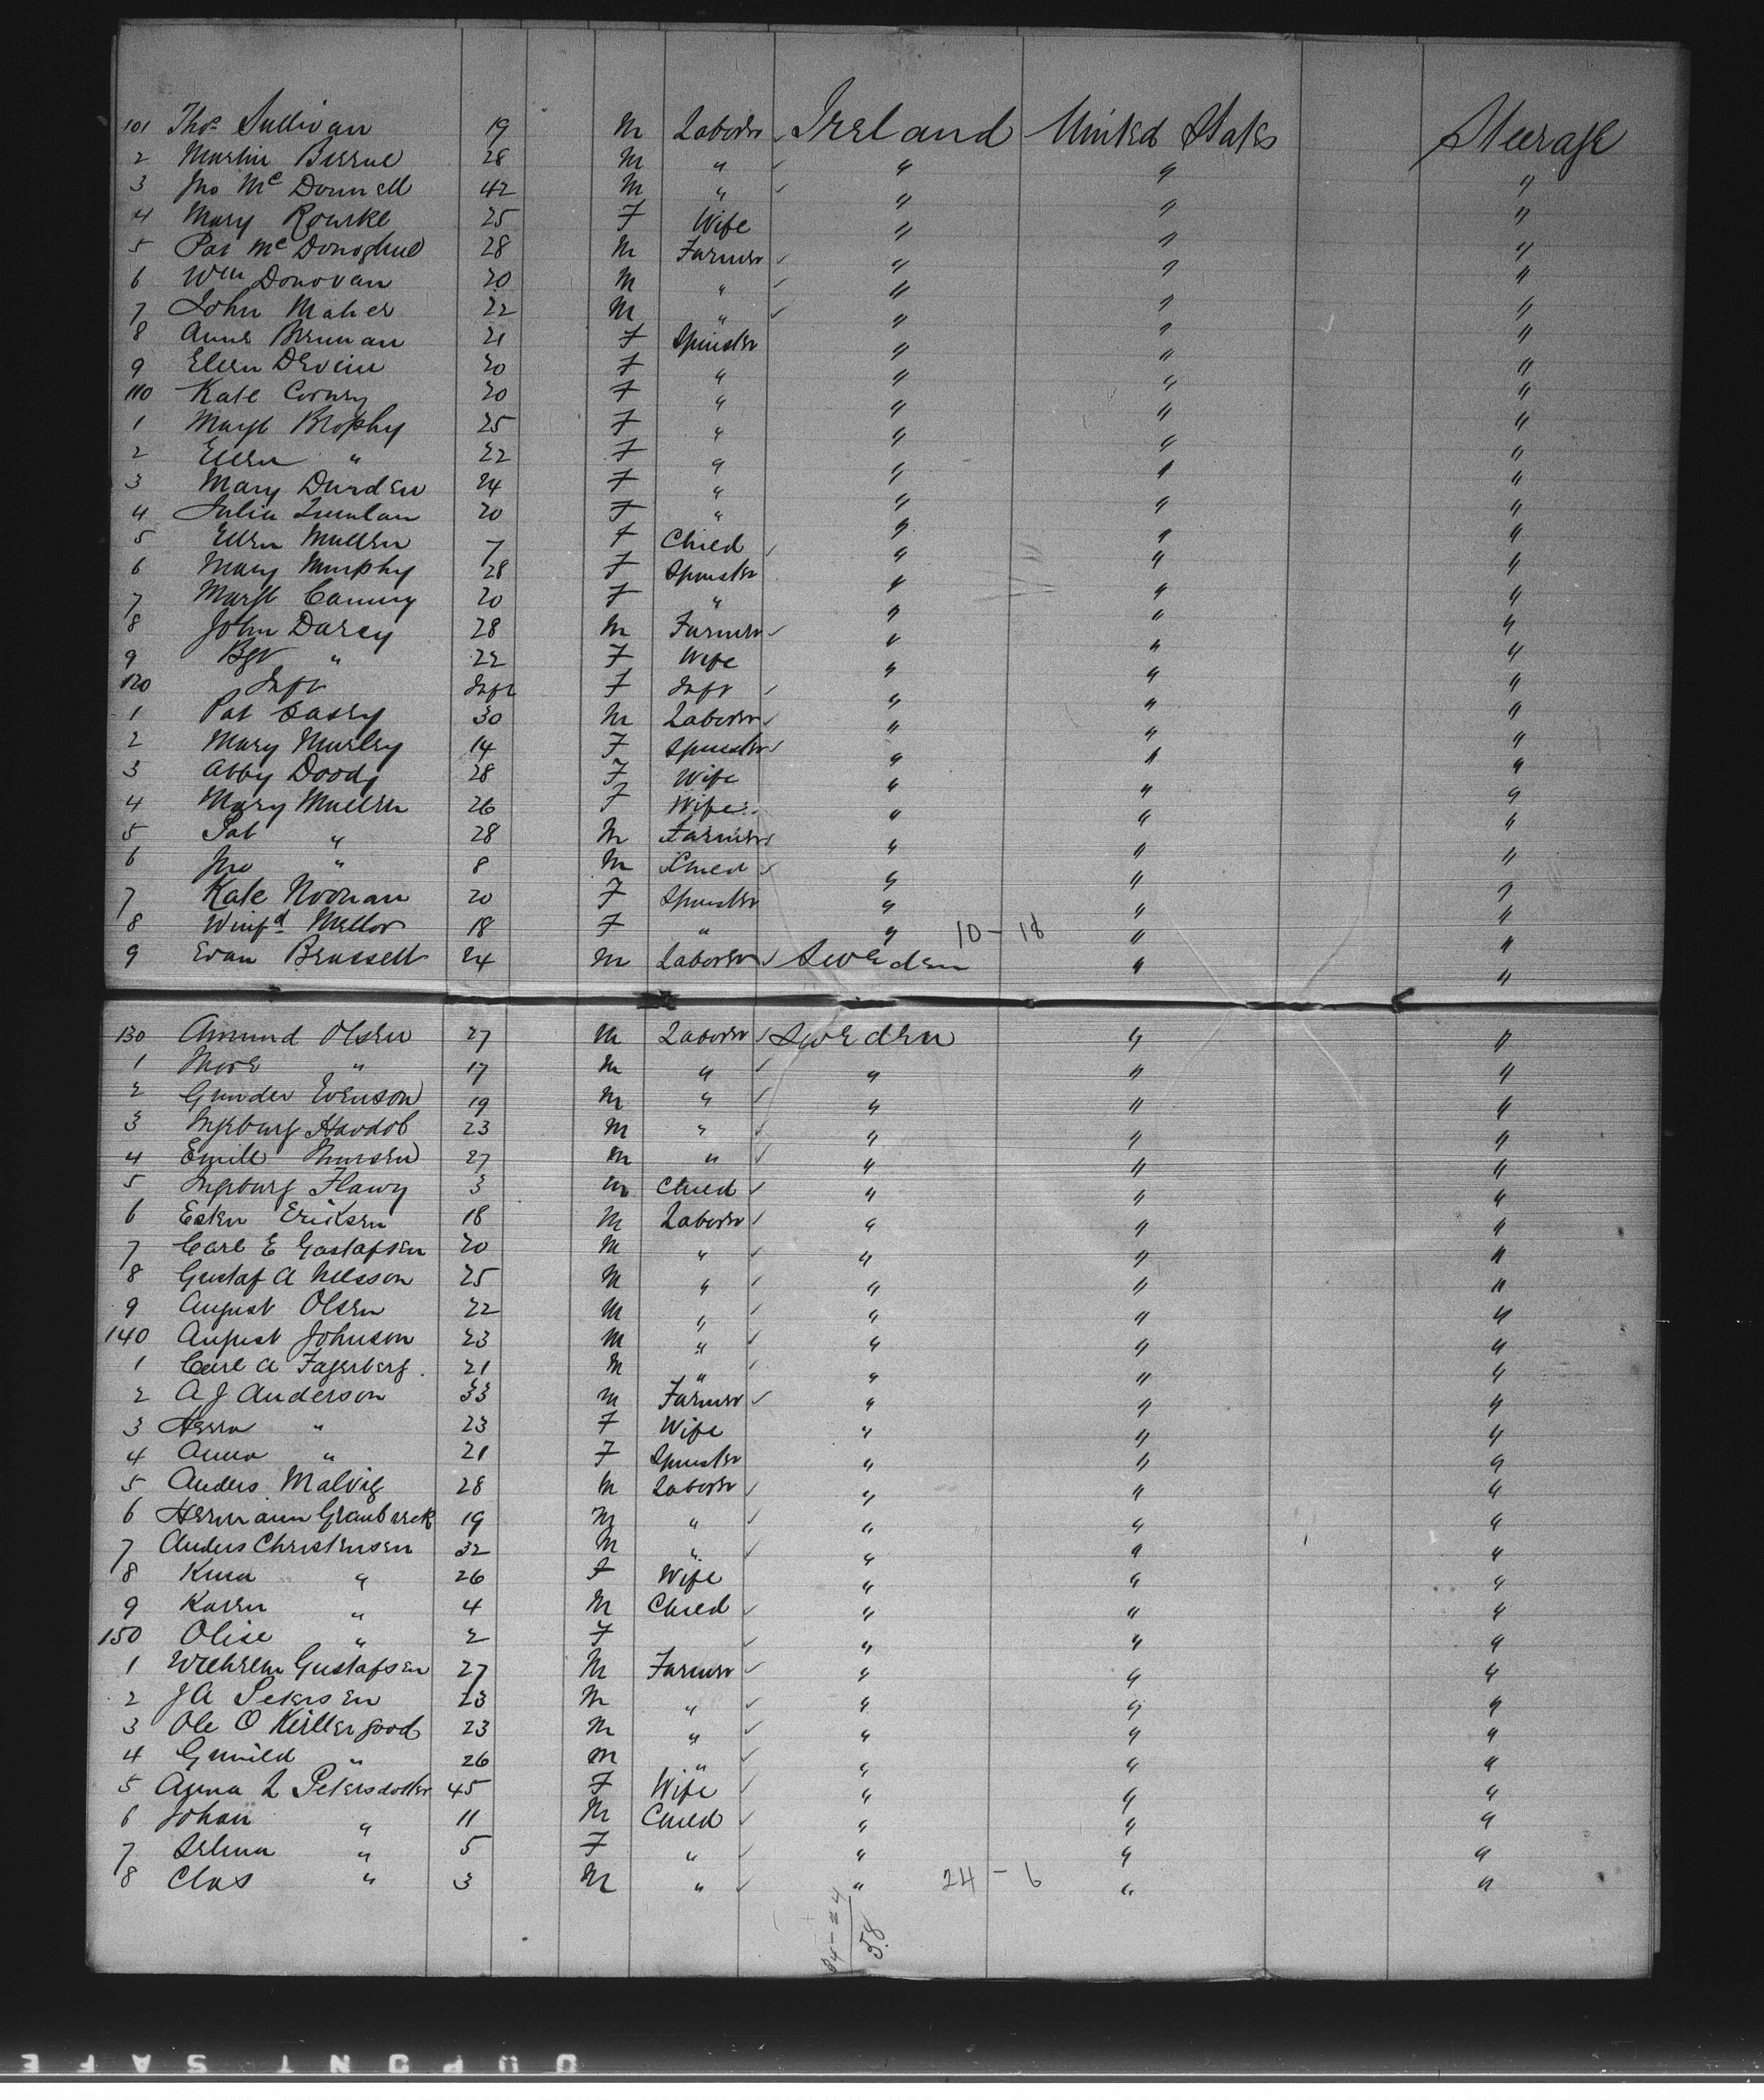 101 Thos Sullivan 19 M Laborer Ireland United States Steerage
2 Martin Beirne 28 M " " " "
3 Jno McDonnell 42 M " " " "
4 Mary Rourke 25 F Wife " " "
5 Pat McDonoghue 28 M Farmer " " "
6 Wm Donovan 20 M " " " "
7 John Maher 22 M " " " "
8 Anne Brennan 21 F Spinster " " "
9 Ellen Devine 20 F " " " "
110 Kate Corney 20 F " " " "
1 Margt Brophy 25 F " " " "
2 Ellen " 22 F " " " "
3 Mary Durden 24 F " " " "
4 Julia Quinlan 20 F " " " "
5 Ellen Mullen 7 F Child " " "
6 Mary Murphy 28 F Spinster " " "
7 Margt Canning 20 F " " " "
8 John Darcy 28 M Farmer " " "
9 Bgt " 22 F Wife " " "
120 Inft Inft F Inft " " "
1 Pat Casey 30 M Laborer " " "
2 Mary Murley 14 F Spinster " " "
3 Abby Doody 28 F Wife " " "
4 Mary Mullen 26 F Wife " " "
5 Pat " 28 M Farmer " " "
6 Jno " 8 M Child " " "
7 Kate Noonan 20 F Spinster " " "
8 Winifd Mellor 18 F " " 10-18 " "
9 Evan Brussell 24 M Laborer Sweden " "
130 Amund Olsen 27 M Laborer Sweden " "
1 " 17 M " " " "
2 Gunder Evenson 19 M " " " "
3 Ingeburg 23 M " " " "
4 Emile 27 M " " " "
5 Ingeburg Flawy 3 M Child " " "
6 Esten Eriksen 18 M Laborer " " "
7 Carl E Gustafsen 20 M " " " "
8 Gustaf A Nelsson 25 M " " " "
9 August Olsen 22 M " " " "
140 August Johnson 23 M " " " "
1 Carl A Fagerberg 21 M " " " "
2 A J Anderson 33 M Farmer " " "
3 " 23 F Wife " " "
4 Anna " 21 F Spinster " " "
5 Anders Malvig 28 M Laborer " " "
6 Hermann Graubaek 19 M " " " "
7 Anders Christensen 32 M " " " "
8 " 26 F Wife " " "
9 Karen " 4 M Child " " "
150 Olise " 2 F " " "
1 Wilhelm Gustafsen 27 M Farmer " " "
2 J A Petersen 23 M " " " "
3 Ole O 23 M " " " "
4 Gunild " 26 M " " " "
5 Anna L Petersdotter 45 F Wife " " "
6 Johan " 11 M Child " " "
7 Selma " 5 F " " " "
8 Clas " 3 M " " 24-6 " "
34-24
58
DUPONT SAFE